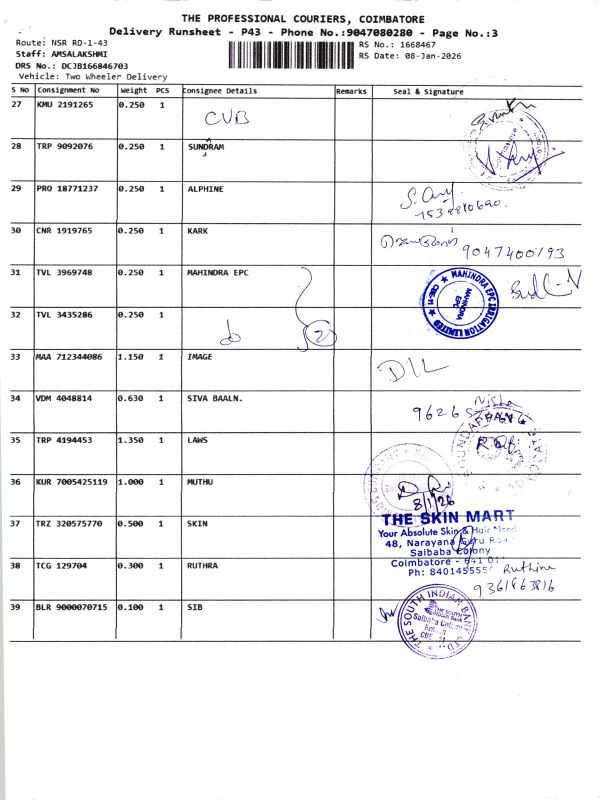 THE PROFESSIONAL COURIERS, COIMBATORE
Delivery Runsheet - P43 - Phone No.:9047080280 - Page No.:3
Route: NSR RD-1-43
Staff: AMSALAKSHMI
DRS No.: DCJB166846703
Vehicle: Two Wheeler Delivery
RS No.: 1668467
RS Date: 08-Jan-2026
S No Consignment No Weight PCS Consignee Details Remarks Seal & Signature
27 KMU 2191265 0.250 1 CUB
28 TRP 9092076 0.250 1 SUNDRAM
29 PRO 18771237 0.250 1 ALPHINE
30 CNR 1919765 0.250 1 KARK
9047400193
31 TVL 3969748 0.250 1 MAHINDRA EPC
MAHINDRA EPC IRRIGATION LIMITED
MAHINDRA
EPC
CBE-11
32 TVL 3435286 0.250 1 do 2
33 MAA 712344086 1.150 1 IMAGE
34 VDM 4048814 0.630 1 SIVA BAALN.
Nisha
35 TRP 4194453 1.350 1 LAWS
36 KUR 7005425119 1.000 1 MUTHU
8/1/26
37 TRZ 320575770 0.500 1 SKIN
THE SKIN MART
Your Absolute Skin & Hair Need
48, Narayana Guru Road
Saibaba Colony
Coimbatore - 641 011
Ph: 8401455556
38 TCG 129704 0.300 1 RUTHRA
Ruthira
9361863816
39 BLR 9000070715 0.100 1 SIB
THE SOUTH INDIAN BANK LTD
THE SOUTH
Indian Bank
Saibaba Colony
Branch
CBE